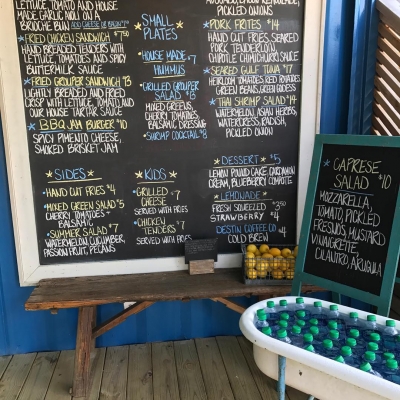 LETTUCE, TOMATO AND HOUSE
MADE GARLIC AIOLI ON A
BRIOCHE BUN
FRIED CHICKEN SANDWICH
HAND BREADED TENDERS WITH
LETTUCE, TOMATOES AND SPICY
BUTTERMILK SAUCE
FRIED GROUPER SANDWICH
LIGHTLY BREADED AND FRIED
CRISP WITH LETTUCE, TOMATO, AND
OUR HOUSE TARTAR SAUCE
BBQ JAM BURGER $10
SPICY PIMENTO CHEESE,
SMOKED BRISKET JAM
SIDES
HAND CUT FRIES $4
MIXED GREEN SALAD $5
CHERRY TOMATOES -
BALSAMIC
SUMMER SALAD $7
WATERMELON, CUCUMBER,
PASSION FRUIT, PECANS
SMALL
PLATES
HOUSE MADE $7
HUMMUS
GRILLED GROUPER
SALAD
MIXED GREENS,
CHERRY TOMATOES,
BALSAMIC DRESSING
SHRIMP COCKTAIL $8
KIDS
GRILLED $7
CHEESE
SERVED WITH FRIES
CHICKEN $7
TENDERS
SERVED WITH FRIES
PICKLED ONIONS
PORK FRITES $14
HAND CUT FRIES, SEARED
PORK TENDERLOIN,
CHIPOTLE CHIMICHURRI SAUCE
SEARED GULF TUNA $17
HEIRLOOM TOMATOES, RED POTATOES,
GREEN BEANS, GREEN GODDESS
THAI SHRIMP SALAD $14
WATERMELON, ASIAN HERBS,
WATERCRESS, RADISH,
PICKLED ONION
DESSERT $5
LEMON POUND CAKE, CARDAMOM
CREAM, BLUEBERRY COMPOTE
LEMONADE
FRESH SQUEEZED $3.50
STRAWBERRY $4
DESTIN COFFEE CO $4
COLD BREW
CAPRESE
SALAD $10
MOZZARELLA,
TOMATO, PICKLED
FRESNOS, MUSTARD
VINAIGRETTE,
CILANTRO, ARUGULA